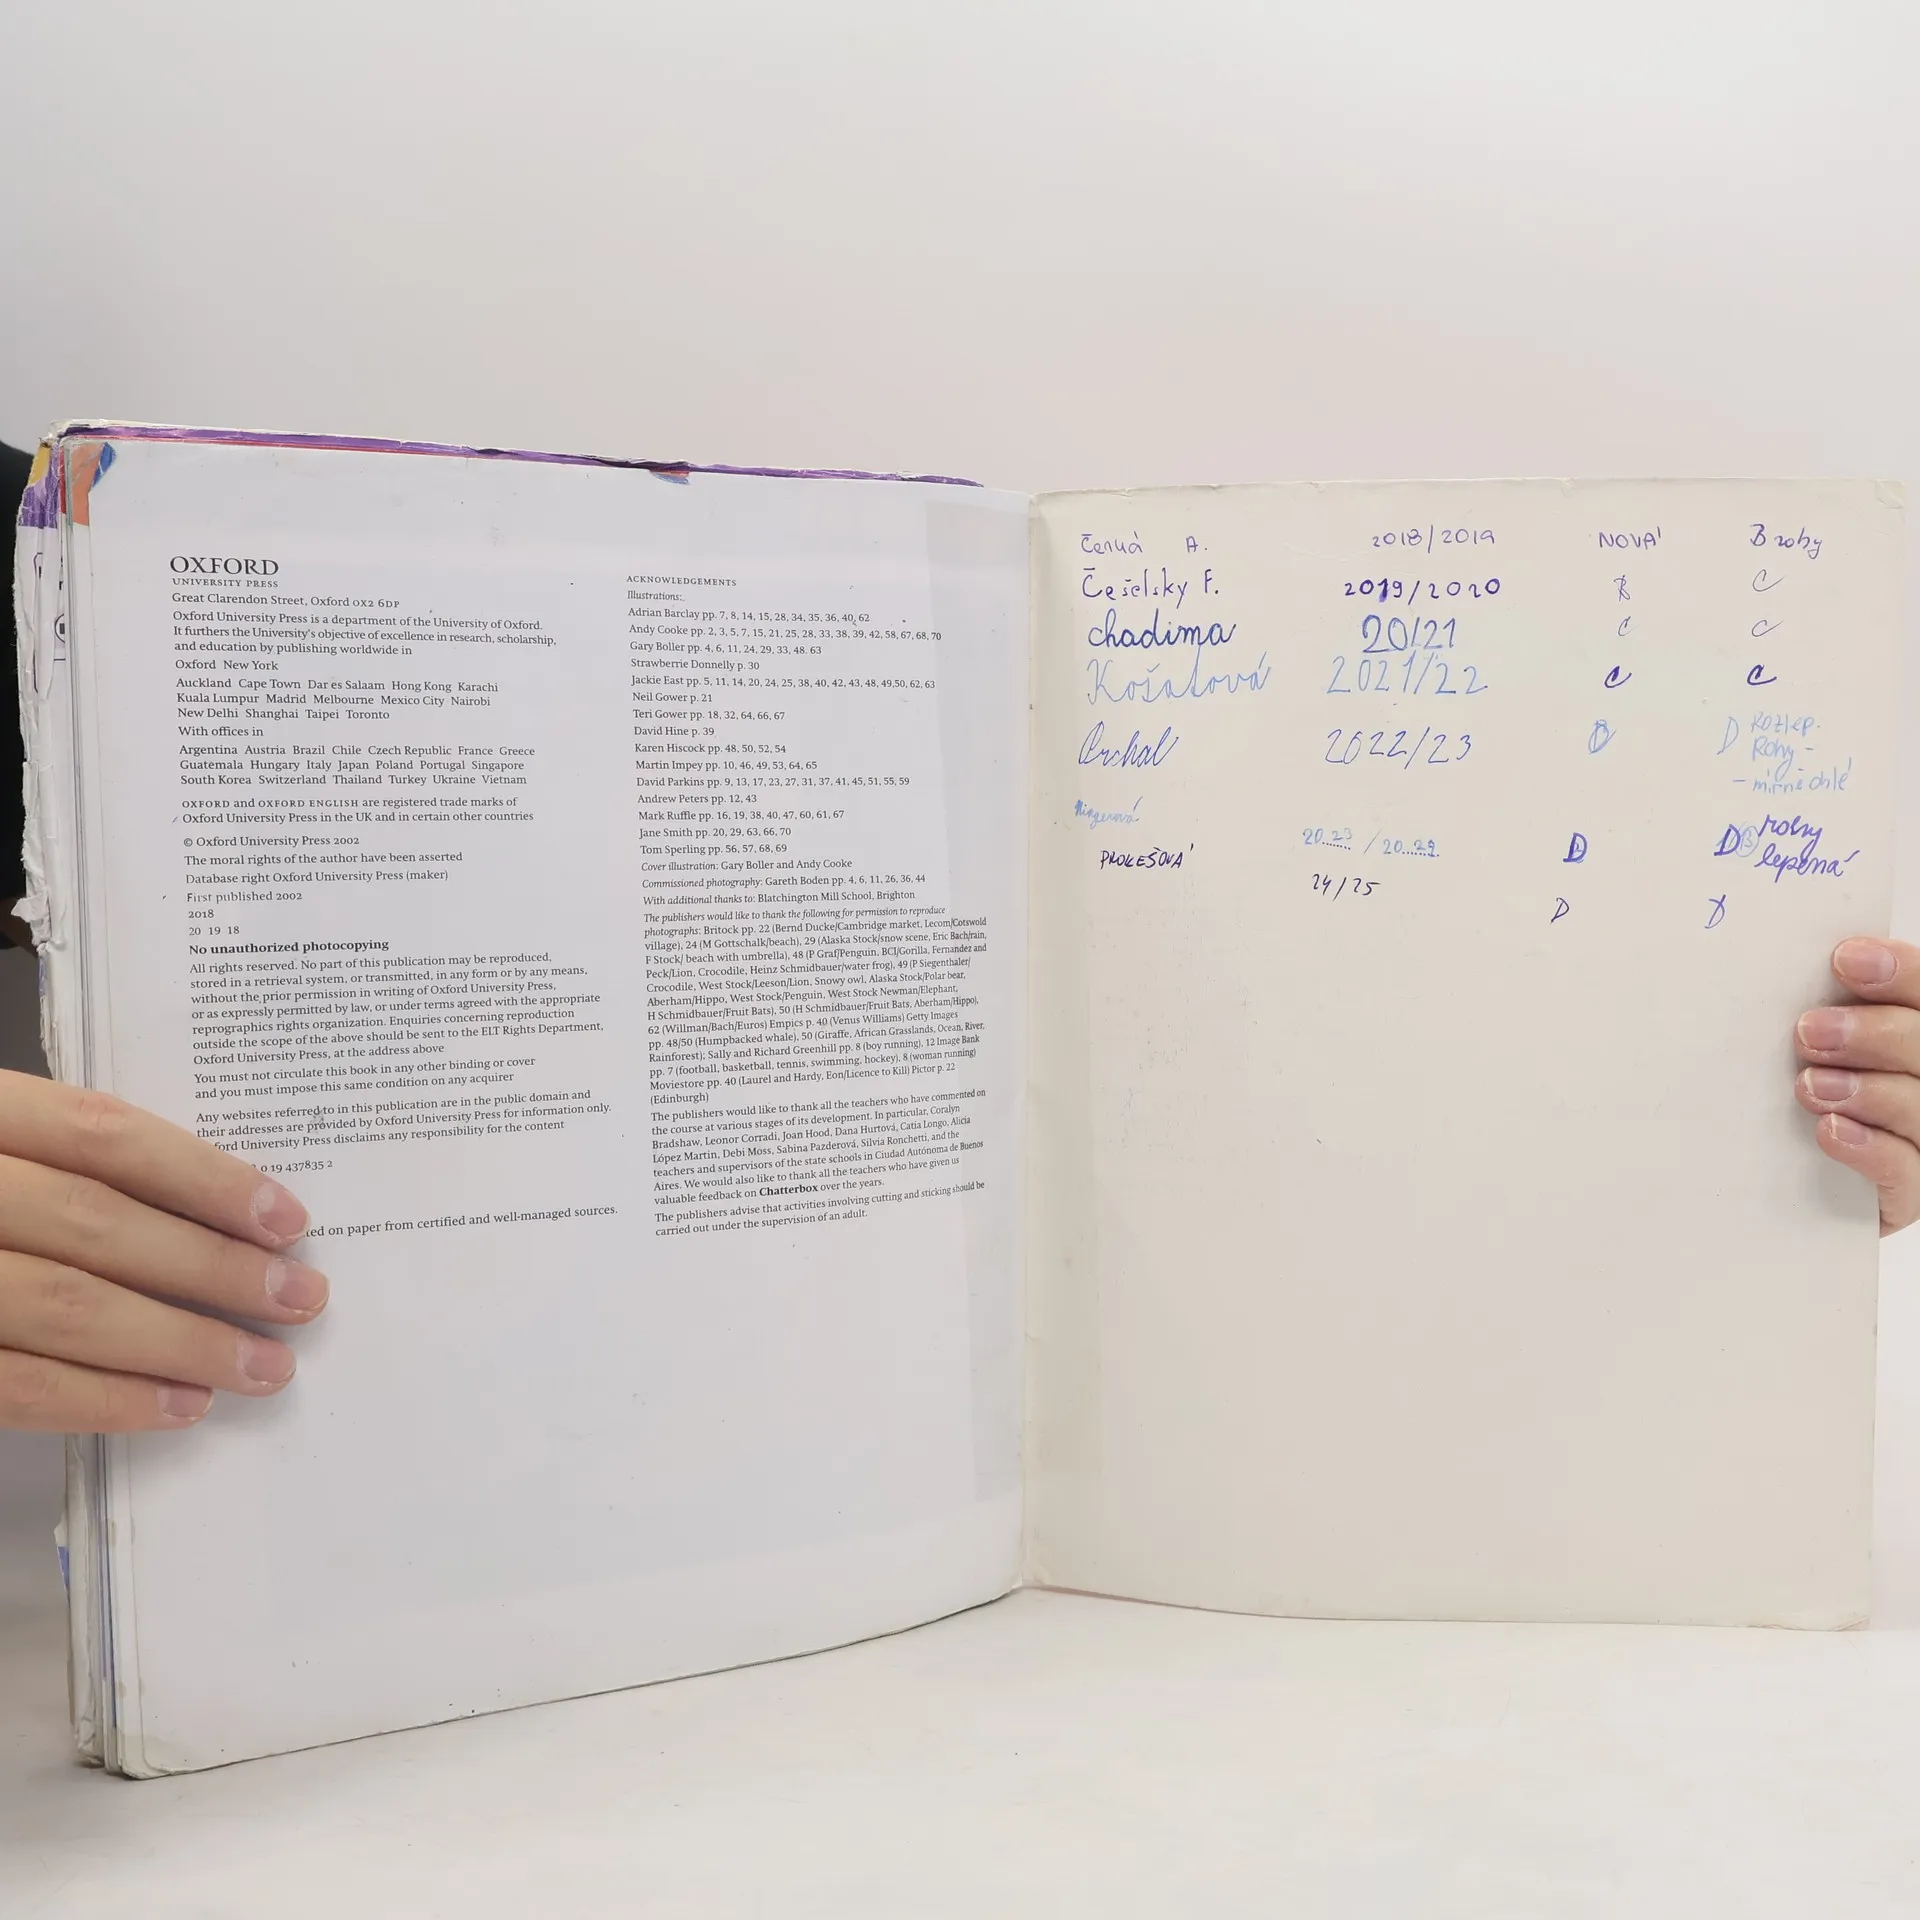 OXFORD
UNIVERSITY PRESS
Great Clarendon Street, Oxford OX2 6DP
Oxford University Press is a department of the University of Oxford.
It furthers the University's objective of excellence in research, scholarship,
and education by publishing worldwide in
Oxford New York
Auckland Cape Town Dar es Salaam Hong Kong Karachi
Kuala Lumpur Madrid Melbourne Mexico City Nairobi
New Delhi Shanghai Taipei Toronto
With offices in
Argentina Austria Brazil Chile Czech Republic France Greece
Guatemala Hungary Italy Japan Poland Portugal Singapore
South Korea Switzerland Thailand Turkey Ukraine Vietnam
OXFORD and OXFORD ENGLISH are registered trade marks of
Oxford University Press in the UK and in certain other countries
© Oxford University Press 2002
The moral rights of the author have been asserted
Database right Oxford University Press (maker)
First published 2002
2018
20 19 18
No unauthorized photocopying
All rights reserved. No part of this publication may be reproduced,
stored in a retrieval system, or transmitted, in any form or by any means,
without the prior permission in writing of Oxford University Press,
or as expressly permitted by law, or under terms agreed with the appropriate
reprographics rights organization. Enquiries concerning reproduction
outside the scope of the above should be sent to the ELT Rights Department,
Oxford University Press, at the address above
You must not circulate this book in any other binding or cover
and you must impose this same condition on any acquirer
Any websites referred to in this publication are in the public domain and
their addresses are provided by Oxford University Press for information only.
ford University Press disclaims any responsibility for the content
0 19 437835 2
ted on paper from certified and well-managed sources.
ACKNOWLEDGEMENTS
Illustrations:
Adrian Barclay pp. 7, 8, 14, 15, 28, 34, 35, 36, 40, 62
Andy Cooke pp. 2, 3, 5, 7, 15, 21, 25, 28, 33, 38, 39, 42, 58, 67, 68, 70
Gary Boller pp. 4, 6, 11, 24, 29, 33, 48. 63
Strawberrie Donnelly p. 30
Jackie East pp. 5, 11, 14, 20, 24, 25, 38, 40, 42, 43, 48, 49,50, 62, 63
Neil Gower p. 21
Teri Gower pp. 18, 32, 64, 66, 67
David Hine p. 39
Karen Hiscock pp. 48, 50, 52, 54
Martin Impey pp. 10, 46, 49, 53, 64, 65
David Parkins pp. 9, 13, 17, 23, 27, 31, 37, 41, 45, 51, 55, 59
Andrew Peters pp. 12, 43
Mark Ruffle pp. 16, 19, 38, 40, 47, 60, 61, 67
Jane Smith pp. 20, 29, 63, 66, 70
Tom Sperling pp. 56, 57, 68, 69
Cover illustration: Gary Boller and Andy Cooke
Commissioned photography: Gareth Boden pp. 4, 6, 11, 26, 36, 44
With additional thanks to: Blatchington Mill School, Brighton
The publishers would like to thank the following for permission to reproduce
photographs: Britock pp. 22 (Bernd Ducke/Cambridge market, Lecom/Cotswold
village), 24 (M Gottschalk/beach), 29 (Alaska Stock/snow scene, Eric Bach/rain,
F Stock/ beach with umbrella), 48 (P Graf/Penguin, BCI/Gorilla, Fernandez and
Peck/Lion, Crocodile, Heinz Schmidbauer/water frog), 49 (P Siegenthaler/
Crocodile, West Stock/Leeson/Lion, Snowy owl, Alaska Stock/Polar bear,
Aberham/Hippo, West Stock/Penguin, West Stock Newman/Elephant,
H Schmidbauer/Fruit Bats), 50 (H Schmidbauer/Fruit Bats, Aberham/Hippo),
62 (Willman/Bach/Euros) Empics p. 40 (Venus Williams) Getty Images
pp. 48/50 (Humpbacked whale), 50 (Giraffe, African Grasslands, Ocean, River,
Rainforest); Sally and Richard Greenhill pp. 8 (boy running), 12 Image Bank
pp. 7 (football, basketball, tennis, swimming, hockey), 8 (woman running)
Moviestore pp. 40 (Laurel and Hardy, Eon/Licence to Kill) Pictor p. 22
(Edinburgh)
The publishers would like to thank all the teachers who have commented on
the course at various stages of its development. In particular, Coralyn
Bradshaw, Leonor Corradi, Joan Hood, Dana Hurtová, Catia Longo, Alicia
López Martin, Debi Moss, Sabina Pazderová, Silvia Ronchetti, and the
teachers and supervisors of the state schools in Ciudad Autónoma de Buenos
Aires. We would also like to thank all the teachers who have given us
valuable feedback on Chatterbox over the years.
The publishers advise that activities involving cutting and sticking should be
carried out under the supervision of an adult.
Černá A. 2018/2019 NOVÁ B rohy
Češelsky F. 2019/2020 C
chadima 20/21 C C
Košatová 2021/22 C C
2022/23 B D Rozlep.
Rohy -
- mírně ohlé
20.23 / 20.24 D D rohy
PROKEŠOVÁ lepená
24/25
D D